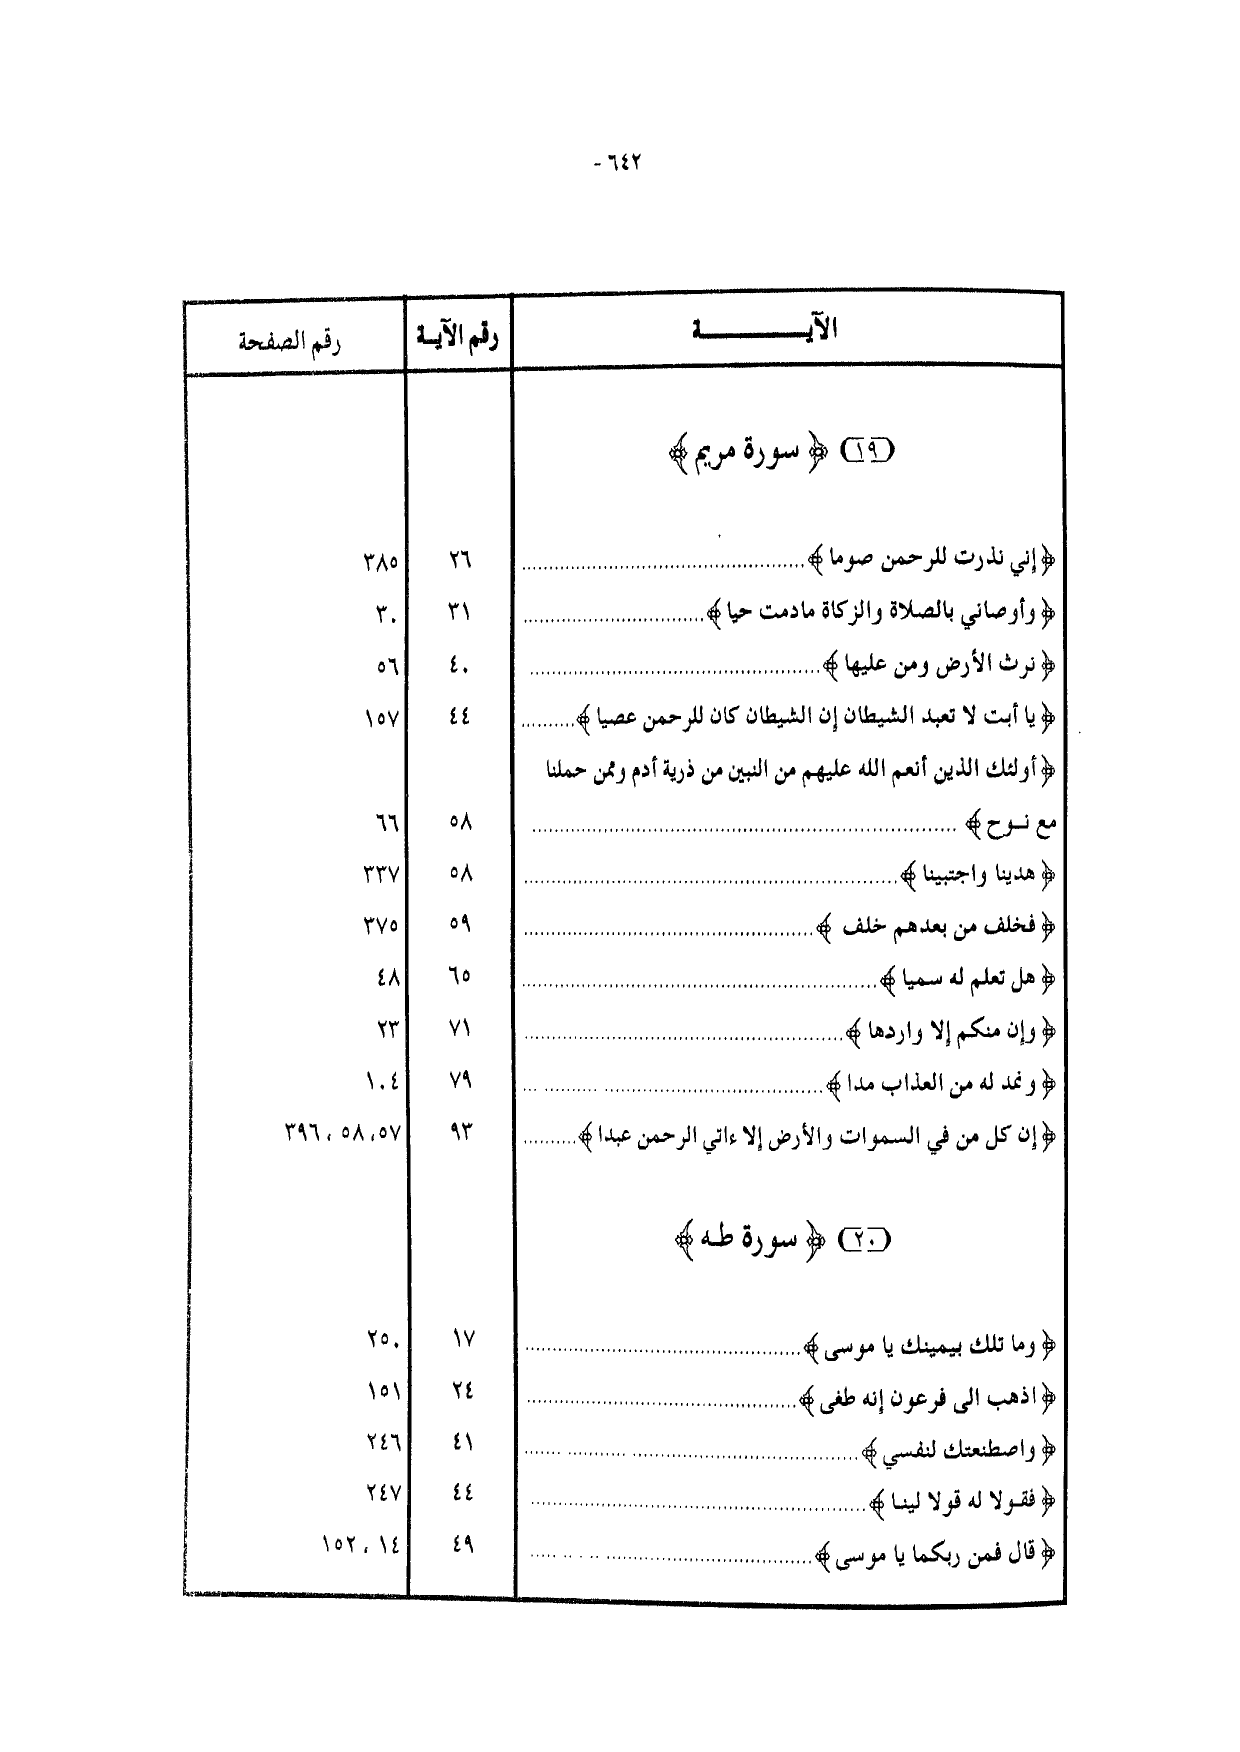 ٦٤٢ -
الآيــــــــة رقم الآيـة رقم الصفحة
(١٩) ﴿ سورة مريم ﴾
﴿ إني نذرت للرحمن صوما ﴾ ................ ٢٦ ٣٨٥
﴿ وأوصاني بالصلاة والزكاة مادمت حيا ﴾ ................ ٣١ ٣٠
﴿ نرث الأرض ومن عليها ﴾ ................ ٤٠ ٥٦
﴿ يا أبت لا تعبد الشيطان إن الشيطان كان للرحمن عصيا ﴾ .......... ٤٤ ١٥٧
﴿ أولئك الذين أنعم الله عليهم من النبين من ذرية أدم وممن حملنا
مع نـوح ﴾ ................ ٥٨ ٦٦
﴿ هدينا واجتبينا ﴾ ................ ٥٨ ٣٣٧
﴿ فخلف من بعدهم خلف ﴾ ................ ٥٩ ٣٧٥
﴿ هل تعلم له سميا ﴾ ................ ٦٥ ٤٨
﴿ وإن منكم إلا واردها ﴾ ................ ٧١ ٢٣
﴿ ونمد له من العذاب مدا ﴾ ................ ٧٩ ١٠٤
﴿ إن كل من في السموات والأرض إلا ءاتي الرحمن عبدا ﴾ .......... ٩٣ ٥٧، ٥٨ ، ٣٩٦
(٢٠) ﴿ سورة طـه ﴾
﴿ وما تلك بيمينك يا موسى ﴾ ................ ١٧ ٢٥٠
﴿ اذهب الى فرعون إنه طغى ﴾ ................ ٢٤ ١٥١
﴿ واصطنعتك لنفسي ﴾ ................ ٤١ ٢٤٦
﴿ فقـولا له قولا لينـا ﴾ ................ ٤٤ ٢٤٧
﴿ قال فمن ربكما يا موسى ﴾ ................ ٤٩ ١٤ ، ١٥٢